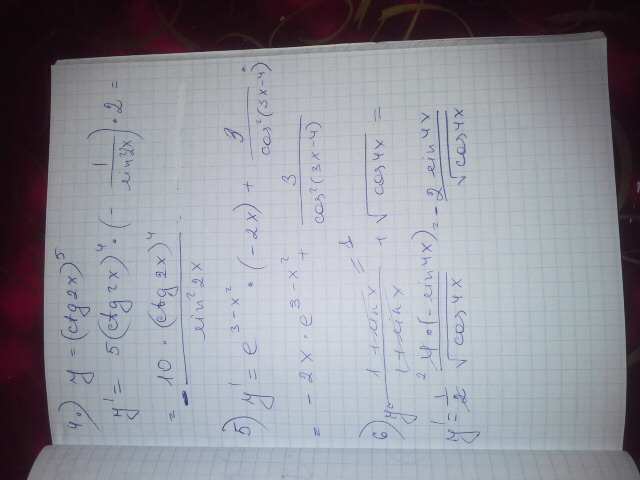 4.) y = (ctg2x)⁵
y' = 5(ctg2x)⁴ · (- 1/sin²2x) · 2 =
= - 10 · (ctg2x)⁴ / sin²2x
5) y' = e^(3-x²) · (-2x) + 9/cos²(3x-4) =
= -2x · e^(3-x²) + 3/cos²(3x-4)
6) y = (1+sinx)/(1+sinx) = 1 + √cos4x =
y' = 1/2 ² 4·(-sin4x)/√cos4x = - 2sin4x/√cos4x